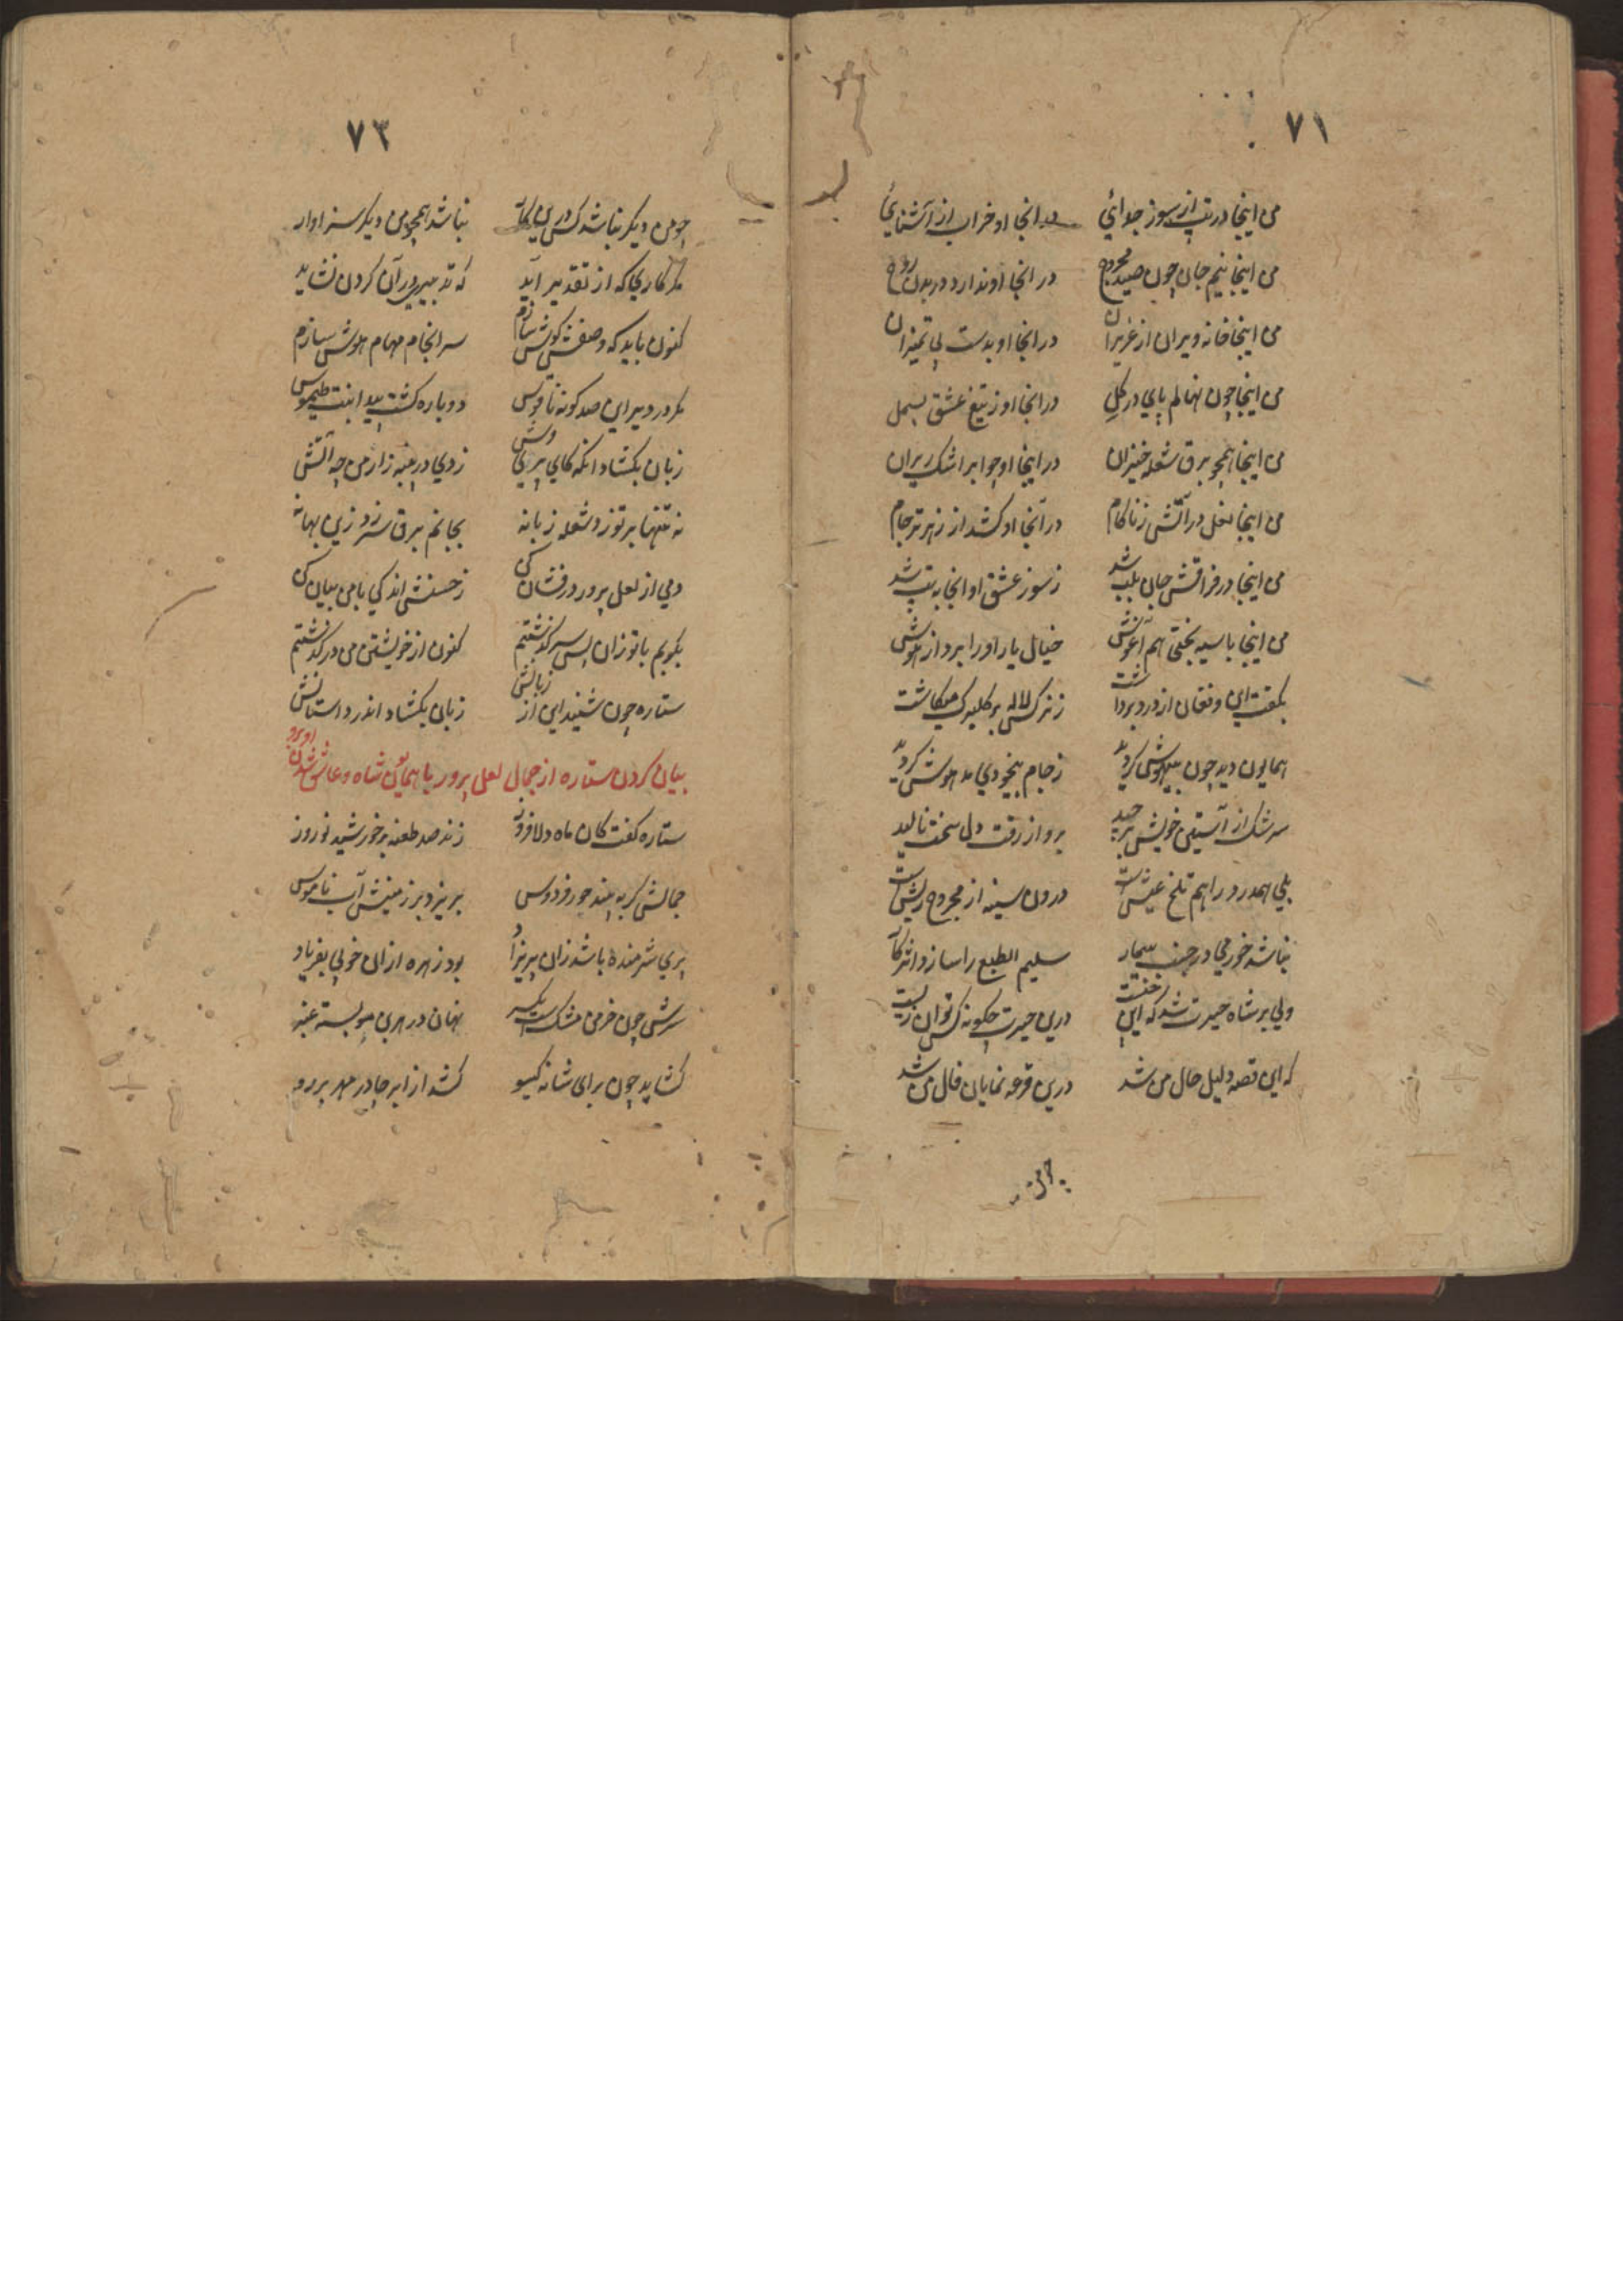 ۷۱
من اینجا در تب از سوز جدائی در انجا او خراب از آشنایی
من اینجا نیم جان چون صید مجروح در انجا او ندارد در بدن روح
من اینجا خانه ویران از عزیزان در انجا او بدست بی تمیزان
من اینجا چون نهالم پای در گل در انجا او ز تیغ عشق بسمل
من اینجا همچو برق شعله خیزان در اینجا او چو ابر اشک ریزان
من اینجا نعل در آتش ز ناکام در آنجا او کشد از زهر تر جام
من اینجا در فراقش جان بلب شد ز سوز عشق او انجا به تب شد
من اینجا با سیه بختی هم آغوش خیال یار او را برد از هوش
بگفت این و فغان از درد برداشت ز نرگس لاله بر گلبرگ میکاشت
همایون دید چون بیهوش گردید ز جام بیخودی مدهوش گردید
سرشک از آستین خویش برچید برو از رقت دل سخت نالید
بلی همدرد را هم تلخ عیش است درون سینه از مجروح ریش است
نباشد خورمی در جنب بیمار سلیم الطبع را سازد اثر کار
ولی بر شاه حیرت شد که این چیست درین حیرت چگونه کس توان زیست
که این قصه دلیل حال من شد درین قرعه نمایان فال من شد
چو من
۷۳
چو من دیگر نباشد کس درین کار نباشد همچو من دیگر سزاوار
مگر کاری که از تقدیر آید که تدبیر در آن کردن نشاید
کنون باید که وصفش گوش سازم سرانجام مهام هوش سازم
دگر در دیر این صد گونه ناقوس دوباره گشت پیدا بنت طیموس
زبان بگشاد انگه کای پری وش زدی در پنبه زار من چه آتش
نه تنها بر تو زد شعله زبانه بجانم برق سر زد زین بهانه
دمی از لعل پرور در فشان کن ز حسنش اندکی با من بیان کن
بگویم با تو زان پس سر گذشتم کنون از خویشتن من در گذشتم
ستاره چون شنید این از زبانش زبان بگشاد اندر داستانش
بیان کردن ستاره از جمال لعل پرور با همایون شاه و عاشق شدن او برو
ستاره گفت کان ماه دلافروز زند صد طعنه بر خورشید نوروز
جمالش گر به بیند حور فردوس بریزد بر زمینش آب ناموس
پری شرمنده باشد زان پریزاد بود زهره ازان خوبی بفریاد
سرش چون خرمن مشک است یکسر نهان در هر بن مو بسته عنبر
گشاید چون برای شانه گیسو کشد از ابر چادر مهر بر رو